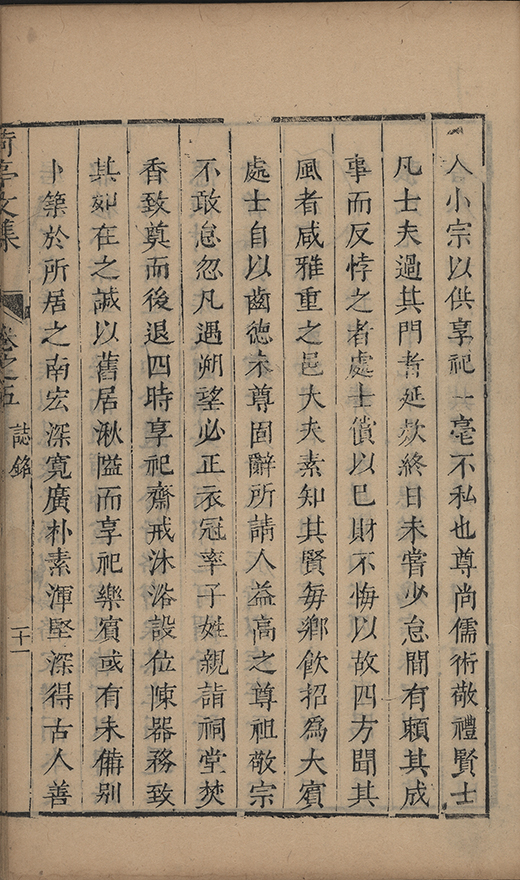 入小宗以供享祀一毫不私也尊尚儒術敬禮賢士
凡士夫過其門者延欵終日未嘗少怠間有頼其成
事而反悖之者處士償以巳財不悔以故四方聞其
風者咸雅重之邑大夫素知其賢毎鄉飲招爲大賓
處士自以齒德未尊固辭所請人益高之尊祖敬宗
不敢怠忽凡遇朔望必正衣冠率子姓親詣祠堂焚
香致奠而後退四時享祀齋戒沐浴設位陳器務致
其如在之誠以舊居湫隘而享祀樂賓或有未僃别
卜築於所居之南宏深寛廣朴素渾堅深得古人善
亭文集 卷之五 誌銘 二十一